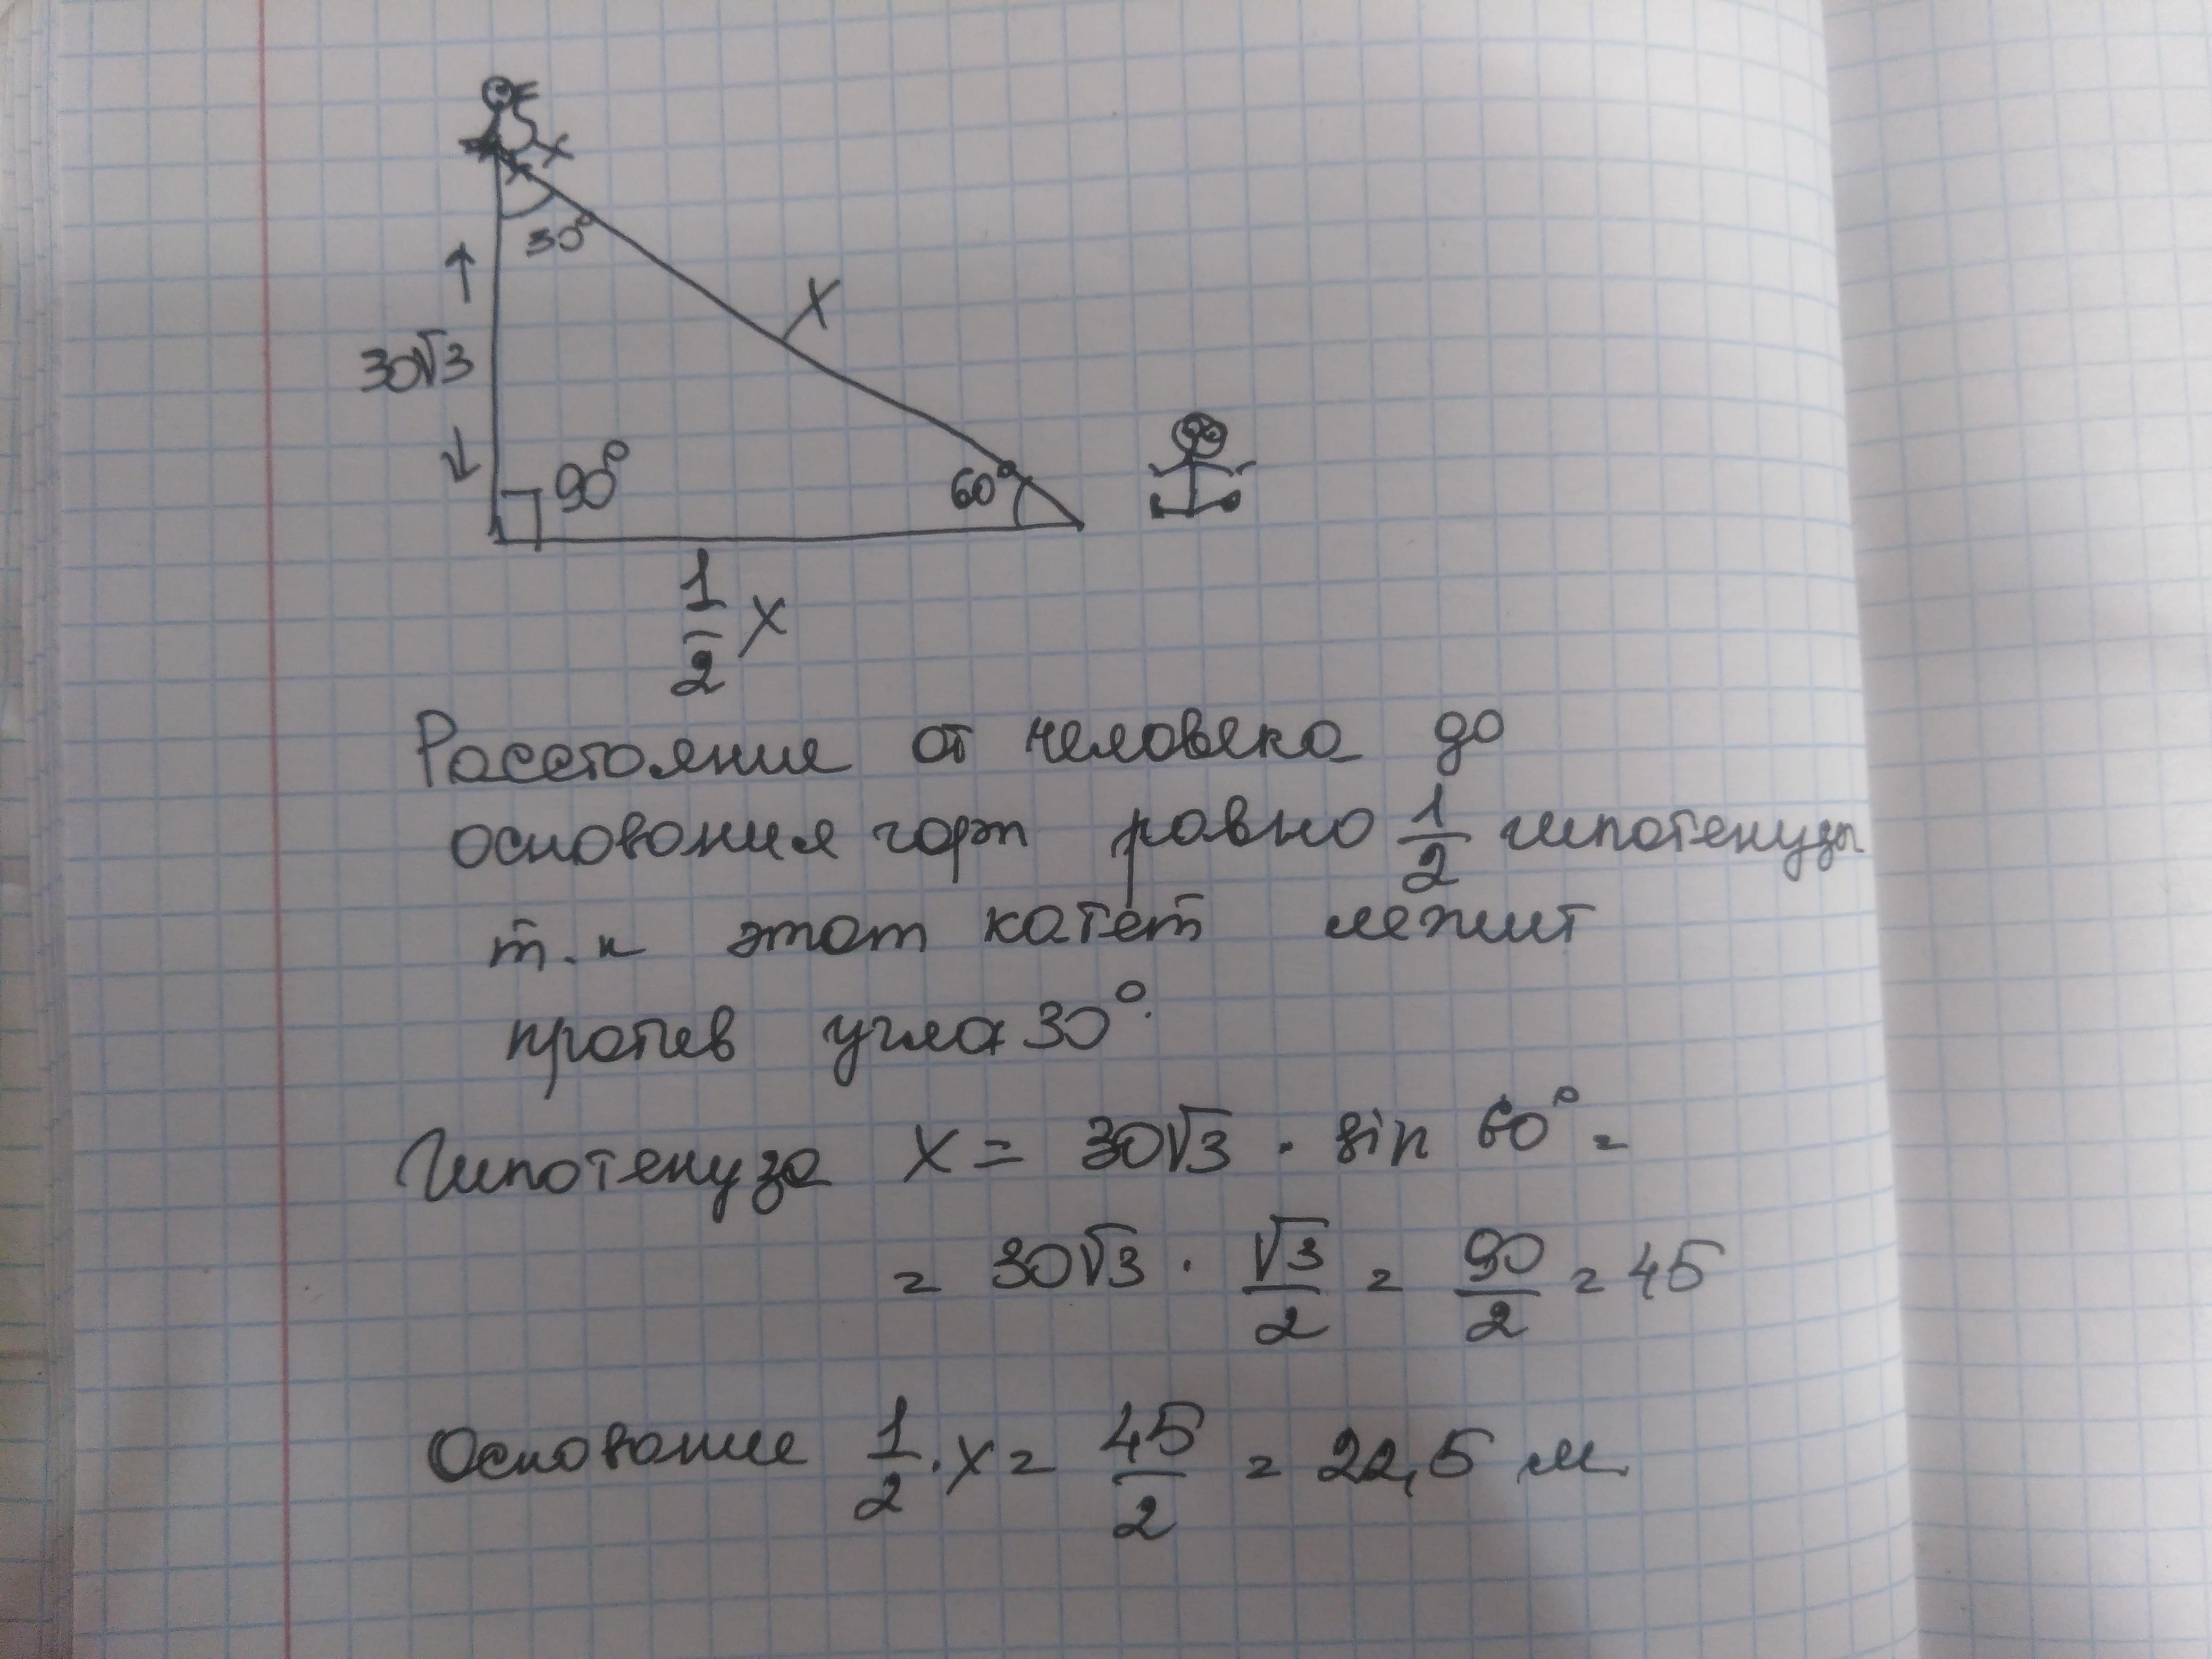 30°
X
30√3
90°
60°
1/2 X
Расстояние от человека до
основания горы равно 1/2 гипотенузы
т.к этот катет лежит
против угла 30°.
Гипотенуза X = 30√3 · sin 60° =
= 30√3 · √3/2 = 90/2 = 45
Основание 1/2 · X = 45/2 = 22,5 м